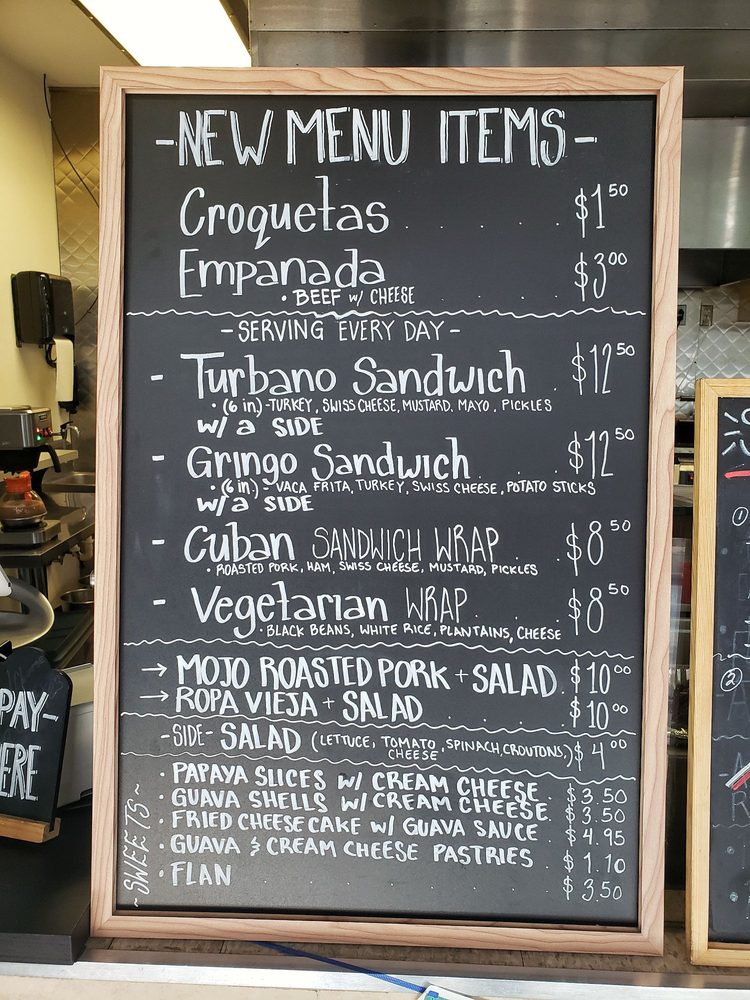 -NEW MENU ITEMS-
Croquetas . . . . . $1.50
Empanada $3.00
• BEEF w/ CHEESE . . . .
-SERVING EVERY DAY-
- Turbano Sandwich $12.50
• (6 in.) -TURKEY, SWISS CHEESE, MUSTARD, MAYO, PICKLES
w/ a SIDE
- Gringo Sandwich $12.50
• (6 in.) - VACA FRITA, TURKEY, SWISS CHEESE, POTATO STICKS
w/ a SIDE
- Cuban SANDWICH WRAP . . $8.50
• ROASTED PORK, HAM, SWISS CHEESE, MUSTARD, PICKLES
- Vegetarian WRAP . . . $8.50
• BLACK BEANS, WHITE RICE, PLANTAINS, CHEESE
→ MOJO ROASTED PORK + SALAD . $10.00
→ ROPA VIEJA + SALAD . . . . $10.00
-SIDE- SALAD (LETTUCE, TOMATO, SPINACH, CROUTONS,) $4.00
CHEESE
~ SWEETS ~
• PAPAYA SLICES w/ CREAM CHEESE $3.50
• GUAVA SHELLS w/ CREAM CHEESE $3.50
• FRIED CHEESECAKE w/ GUAVA SAUCE $4.95
• GUAVA & CREAM CHEESE PASTRIES $1.10
• FLAN $3.50
PAY-
ERE
1
2